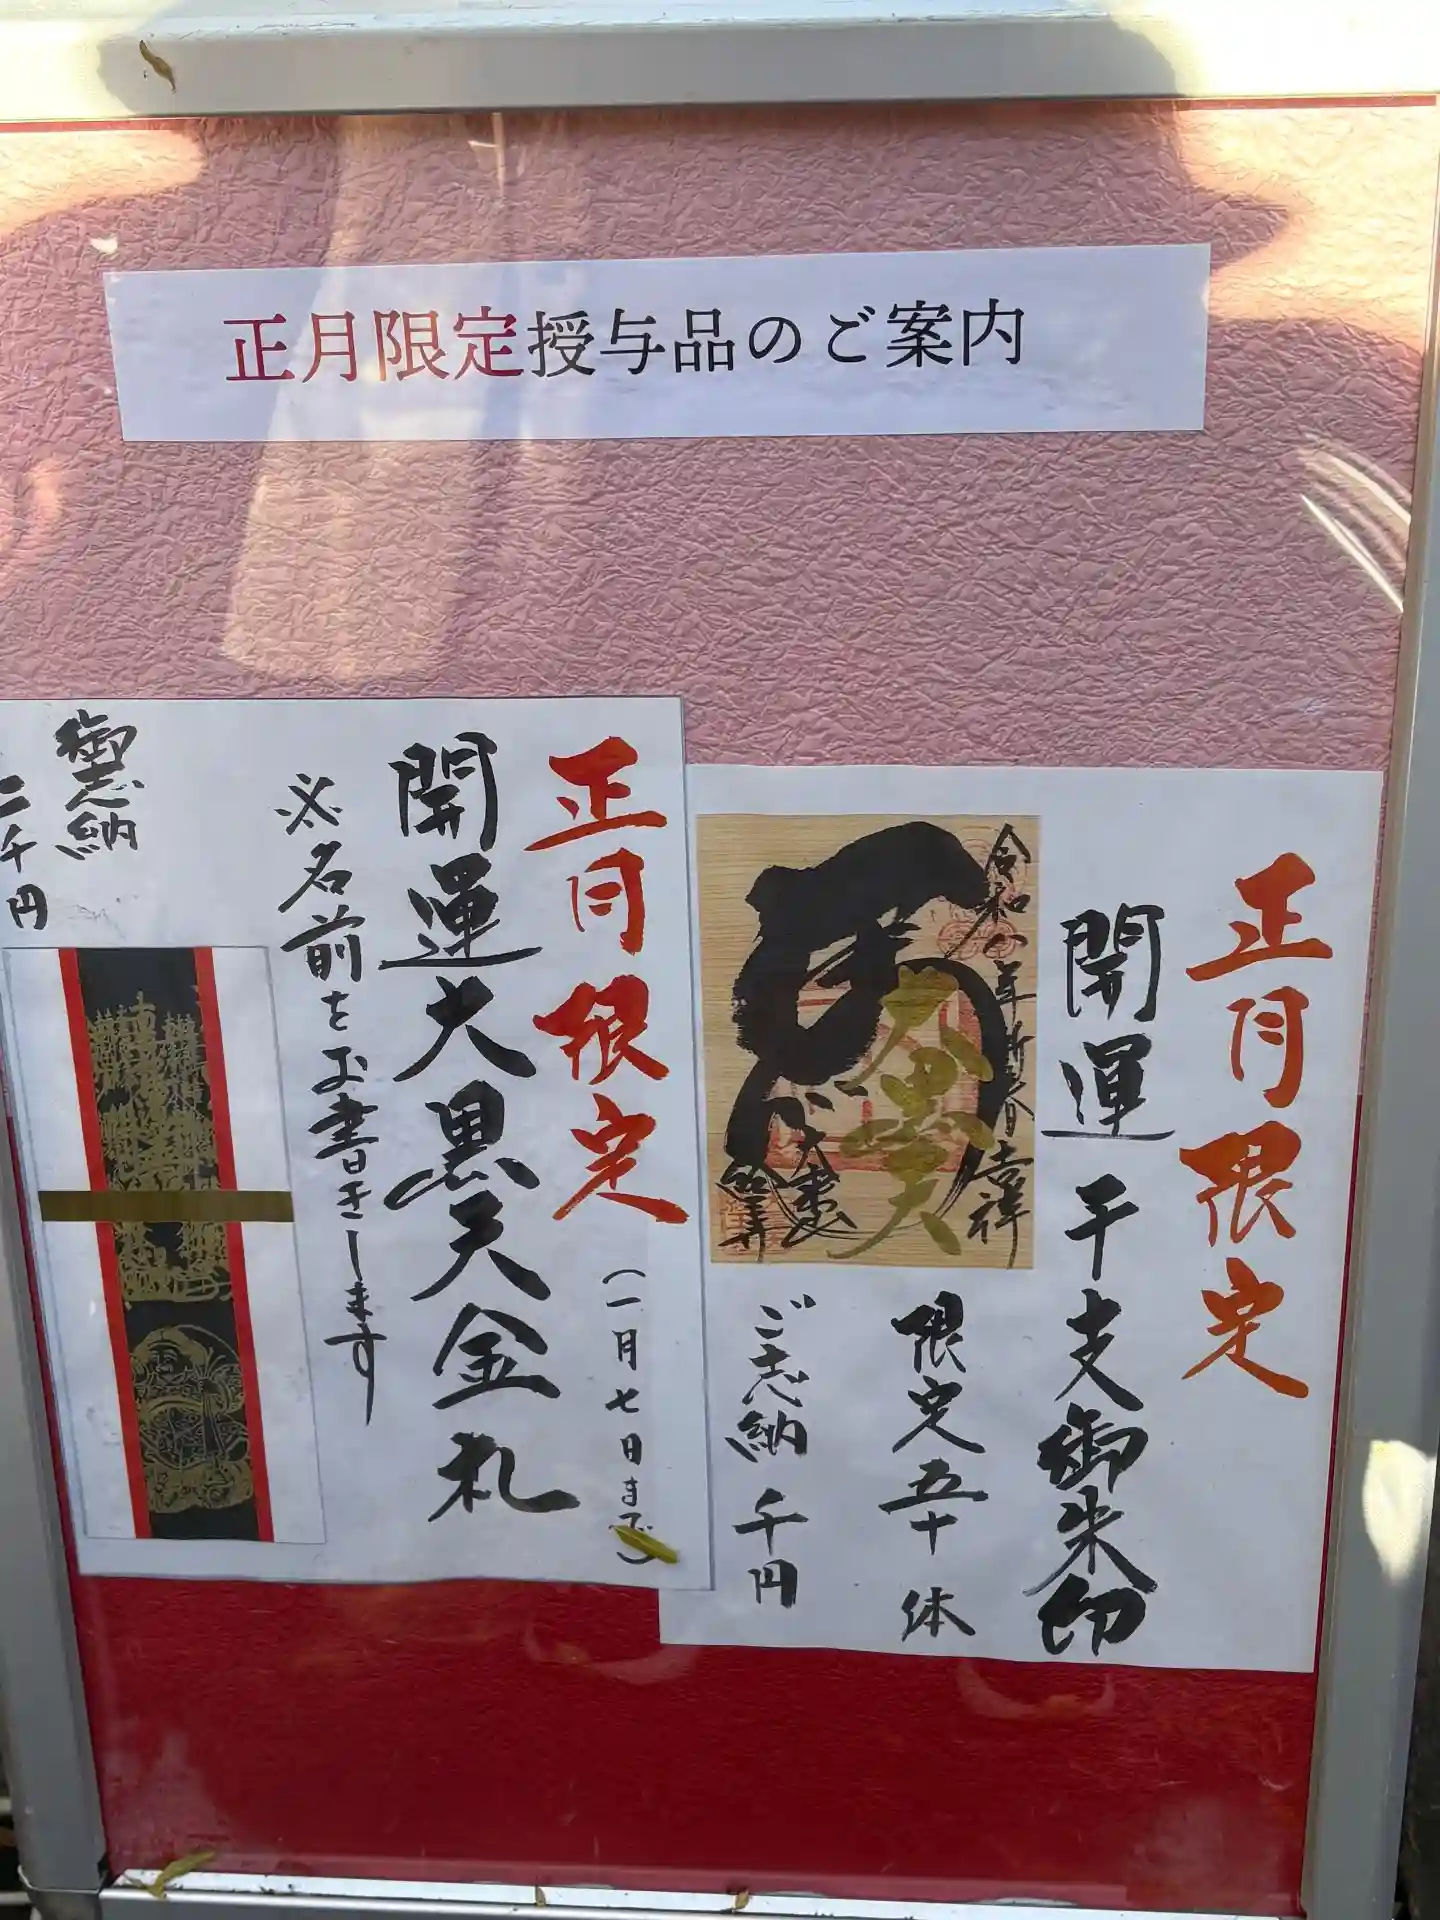 正月限定授与品のご案内
正月限定
開運干支御朱印
限定五十体
ご志納 千円
令和八年新春
吉祥
大黒天
正月限定
(一月七日まで)
開運大黒天金札
※名前をお書きします
御志納
二千円